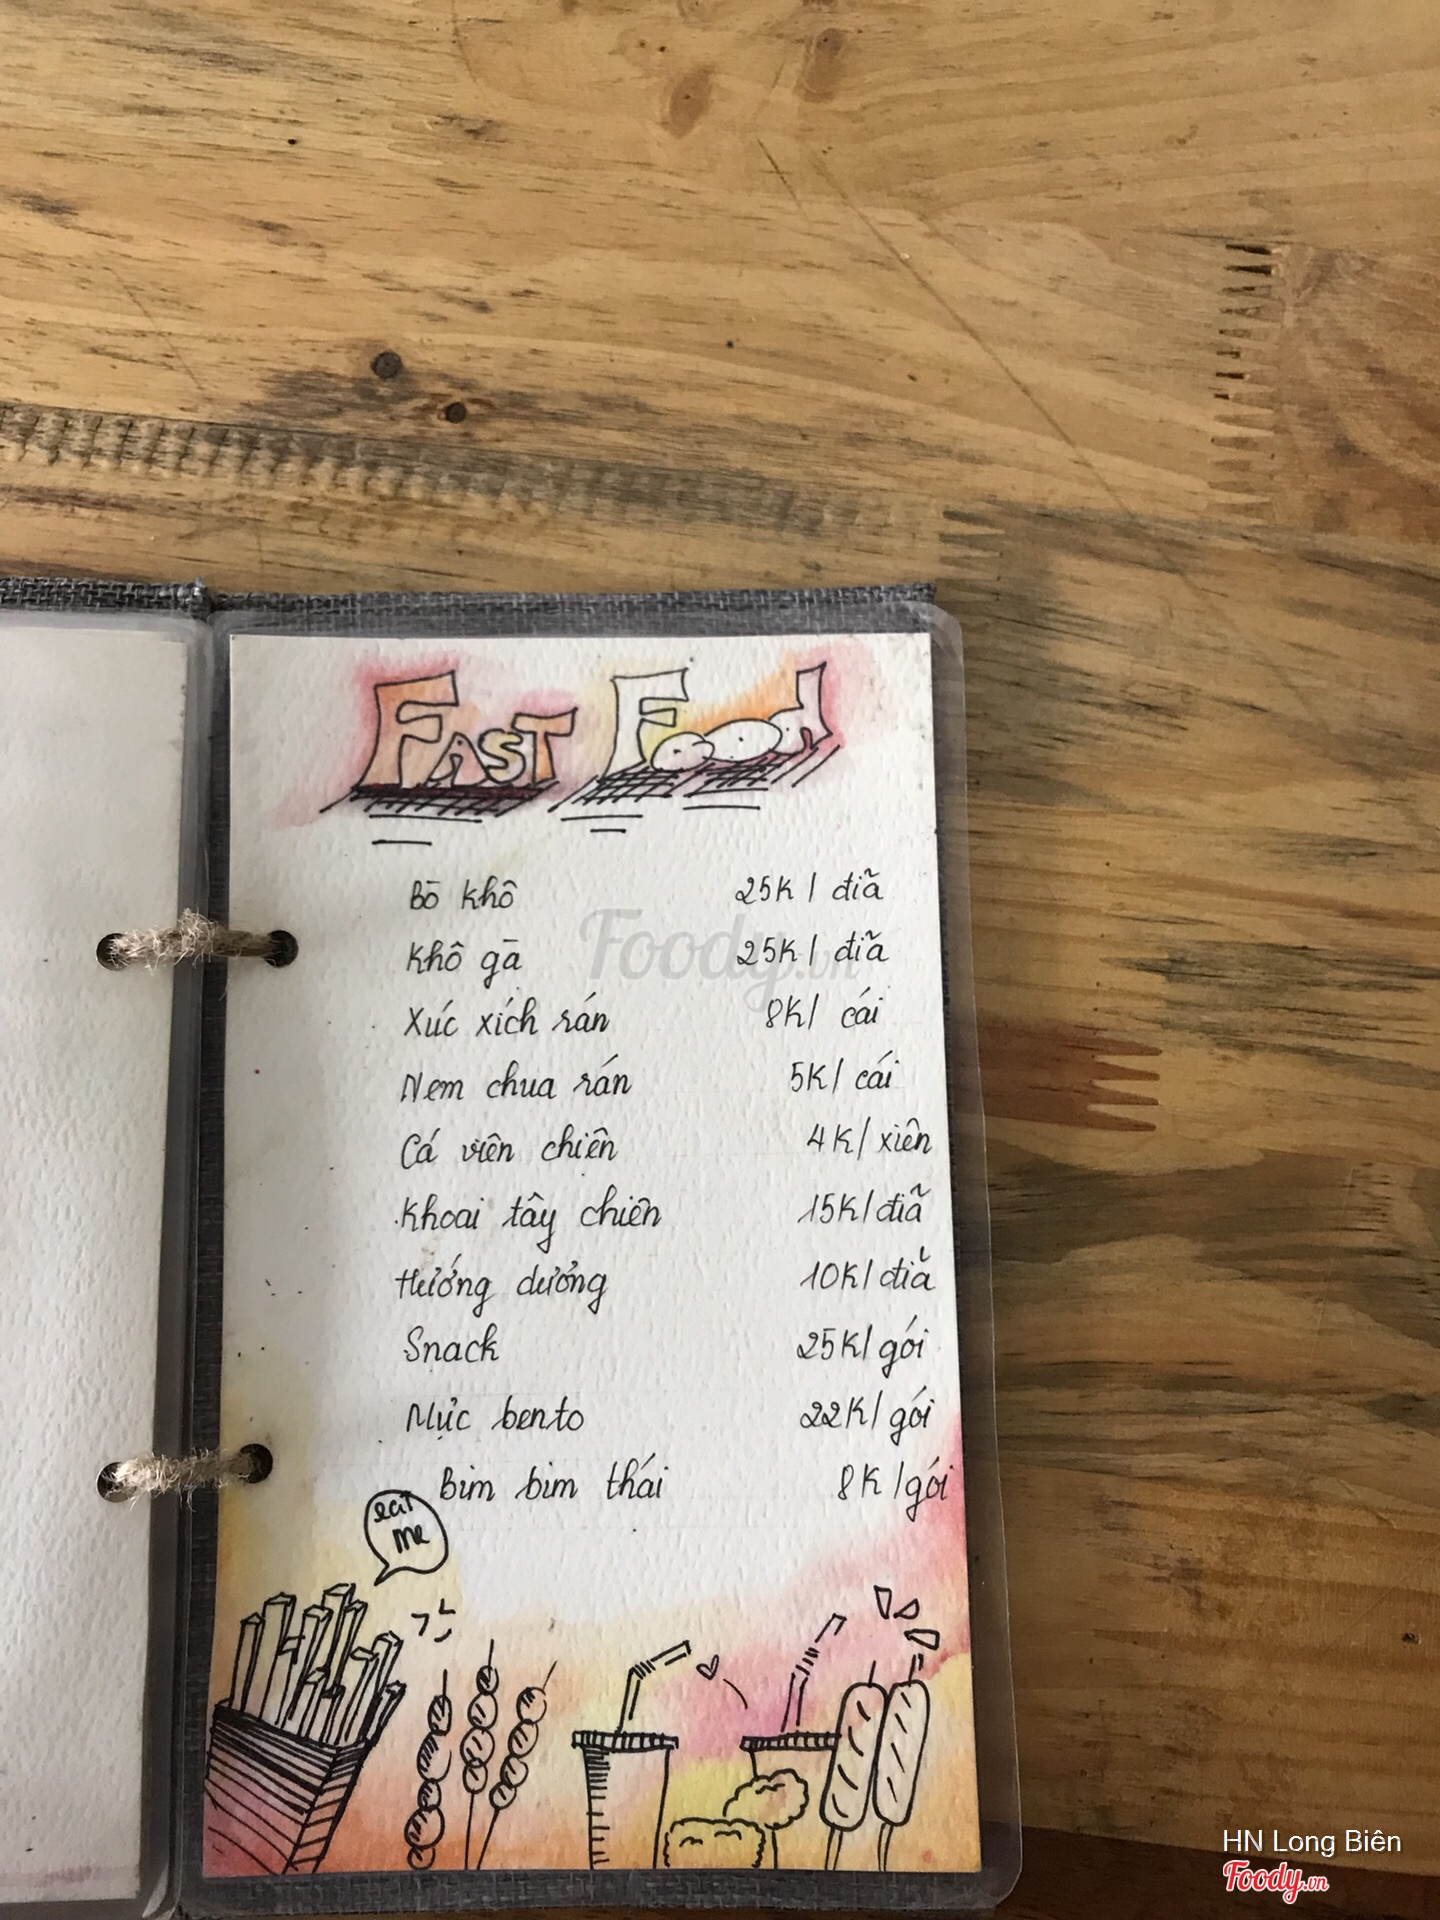 FAST Food
Bò khô 25K / đĩa
Khô gà 25K / đĩa
Xúc xích rán 8K / cái
Nem chua rán 5K / cái
Cá viên chiên 4K / xiên
Khoai tây chiên 15K / đĩa
Hướng dương 10K / đĩa
Snack 25K / gói
Mực bento 22K / gói
Bim bim thái 8K / gói
eat
me
Foody.vn
HN Long Biên
Foody.vn